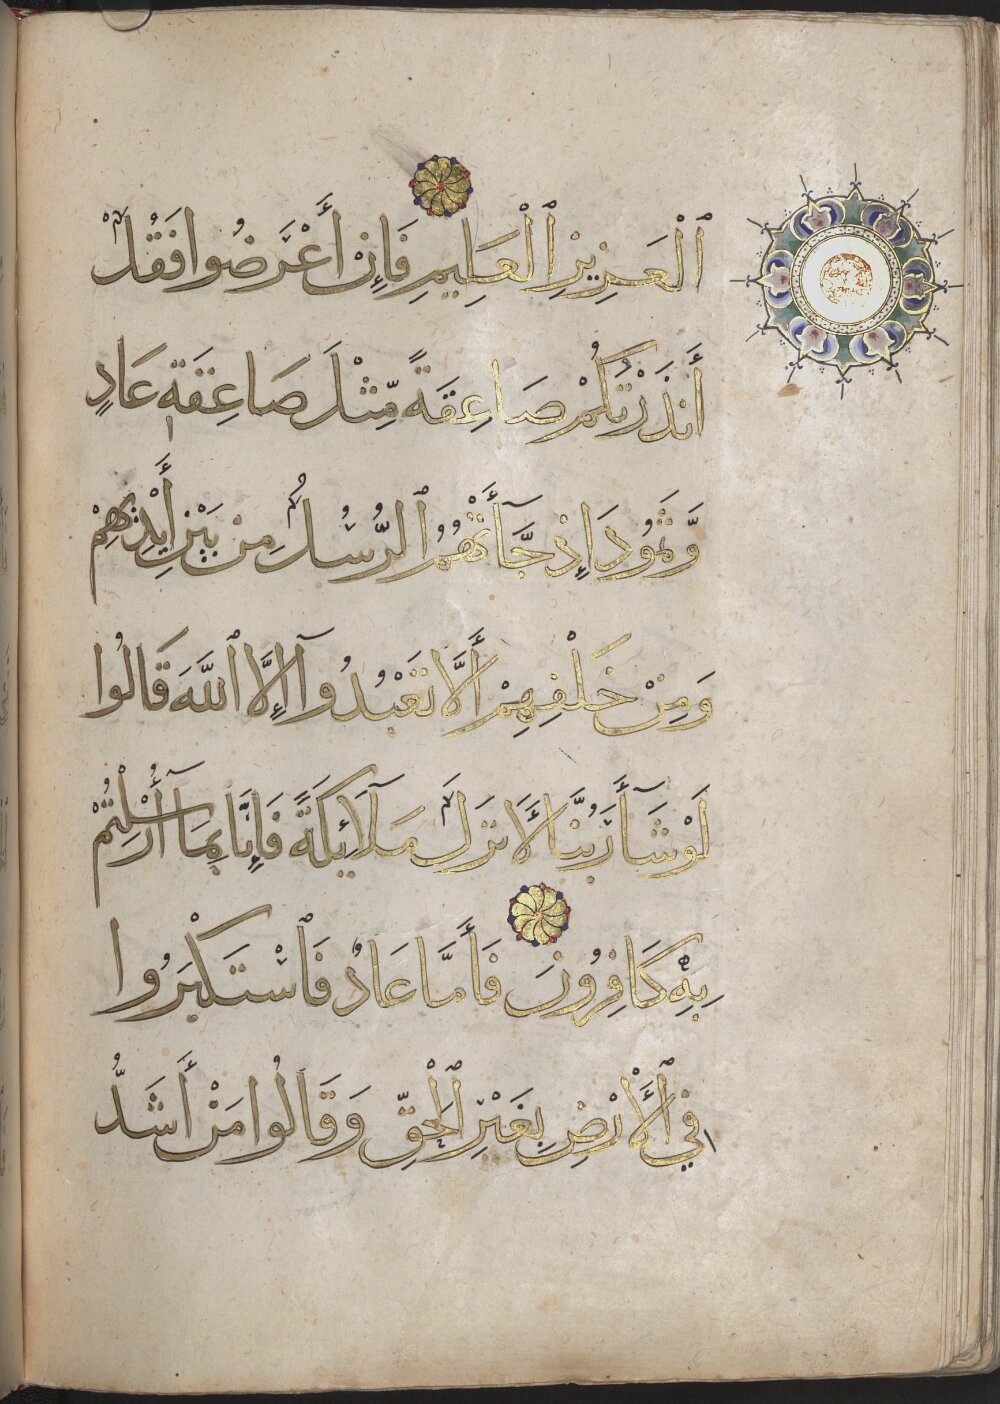 ٱلْعَزِيزِ ٱلْعَلِيمِ فَإِنْ أَعْرَضُوا فَقُلْ
أَنذَرْتُكُمْ صَاعِقَةً مِّثْلَ صَاعِقَةِ عَادٍ
وَّثَمُودَ إِذ جَّآءَتْهُمُ ٱلرُّسُلُ مِن بَيْنِ أَيْدِيهِمْ
وَمِنْ خَلْفِهِمْ أَلَّا تَعْبُدُوٓا إِلَّا ٱللَّهَ قَالُوا
لَوْ شَآءَ رَبُّنَا لَأَنزَلَ مَلَآئِكَةً فَإِنَّا بِمَآ أُرْسِلْتُمْ
بِهِ كَافِرُونَ فَأَمَّا عَادٌ فَٱسْتَكْبَرُوا
فِي ٱلْأَرْضِ بِغَيْرِ ٱلْحَقِّ وَقَالُوا مَنْ أَشَدُّ